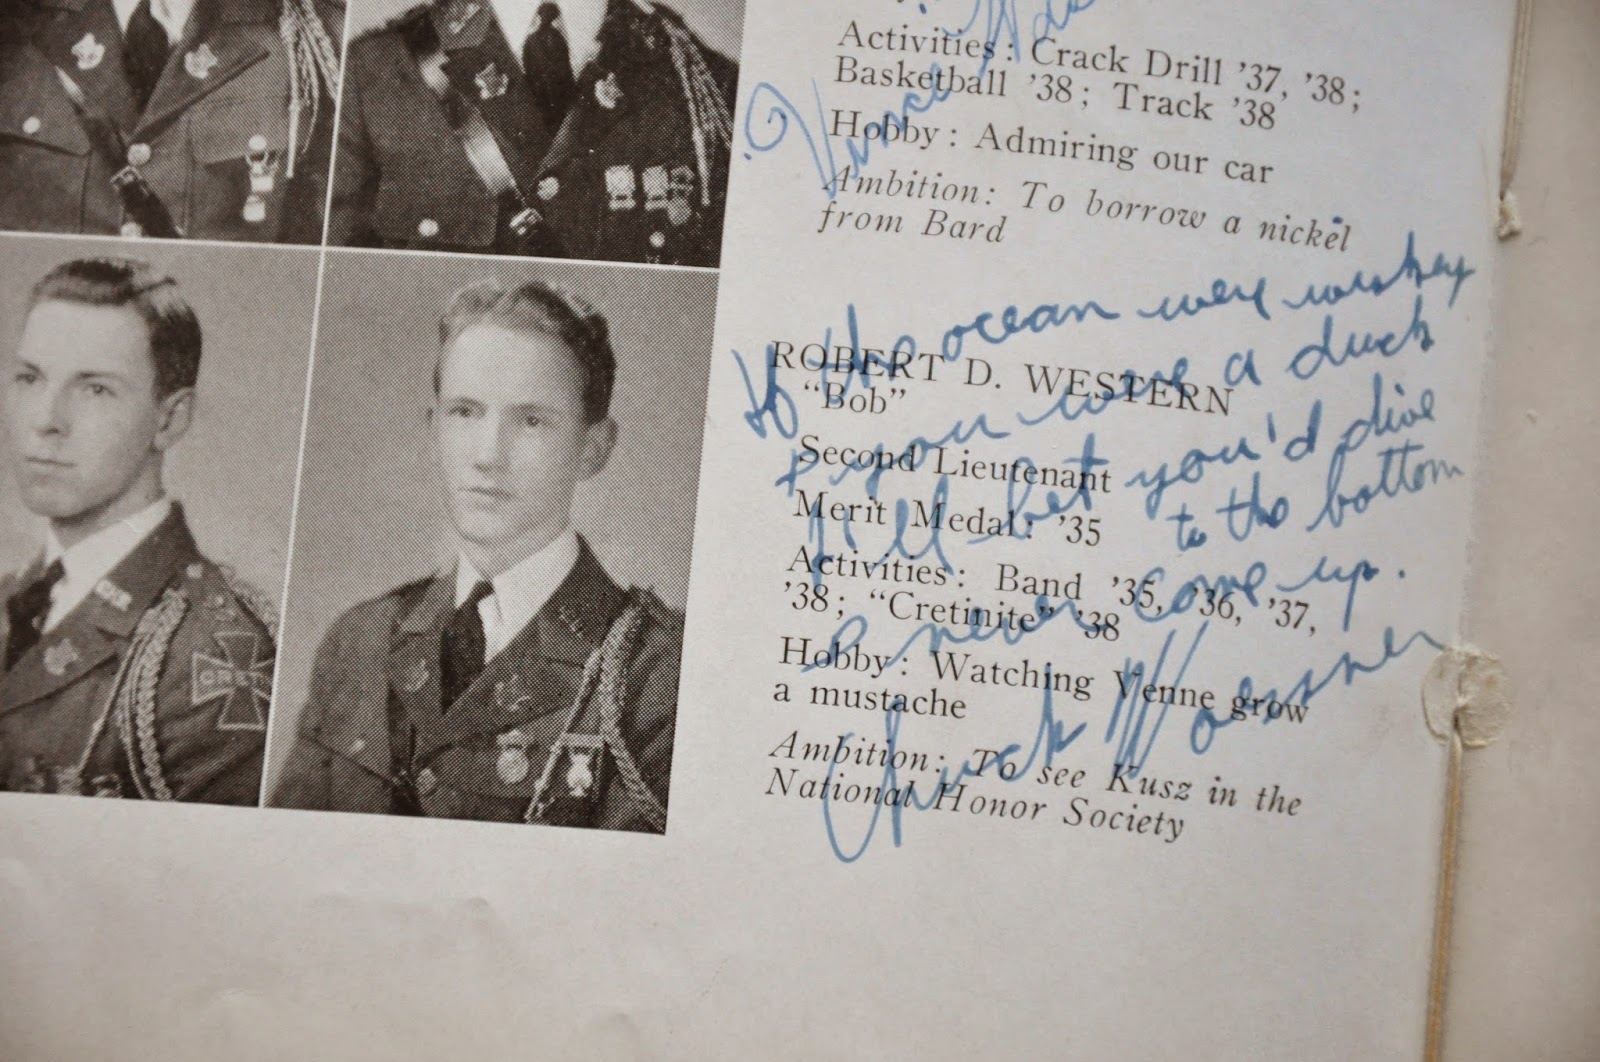 Activities: Crack Drill '37, '38;
Basketball '38; Track '38
Hobby: Admiring our car
Ambition: To borrow a nickel
from Bard
If the ocean were whiskey
& you were a duck
I'll bet you'd dive
to the bottom
& never come up.
Chuck Woessner
ROBERT D. WESTERN
"Bob"
Second Lieutenant
Merit Medal: '35
Activities: Band '35, '36, '37,
'38; "Cretinite" '38
Hobby: Watching Venne grow
a mustache
Ambition: To see Kusz in the
National Honor Society
CRET